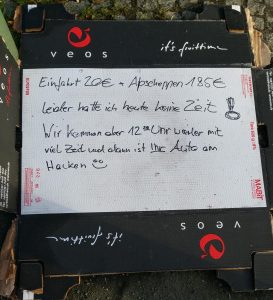 veos
it's fruittime
Einfahrt 20€ + Abschleppen 185€
Leider hatte ich heute keine Zeit!
Wir kommen aber 12°° Uhr wieder mit
viel Zeit und dann ist Ihr Auto am
Hacken ☺
it's fruittime
veos